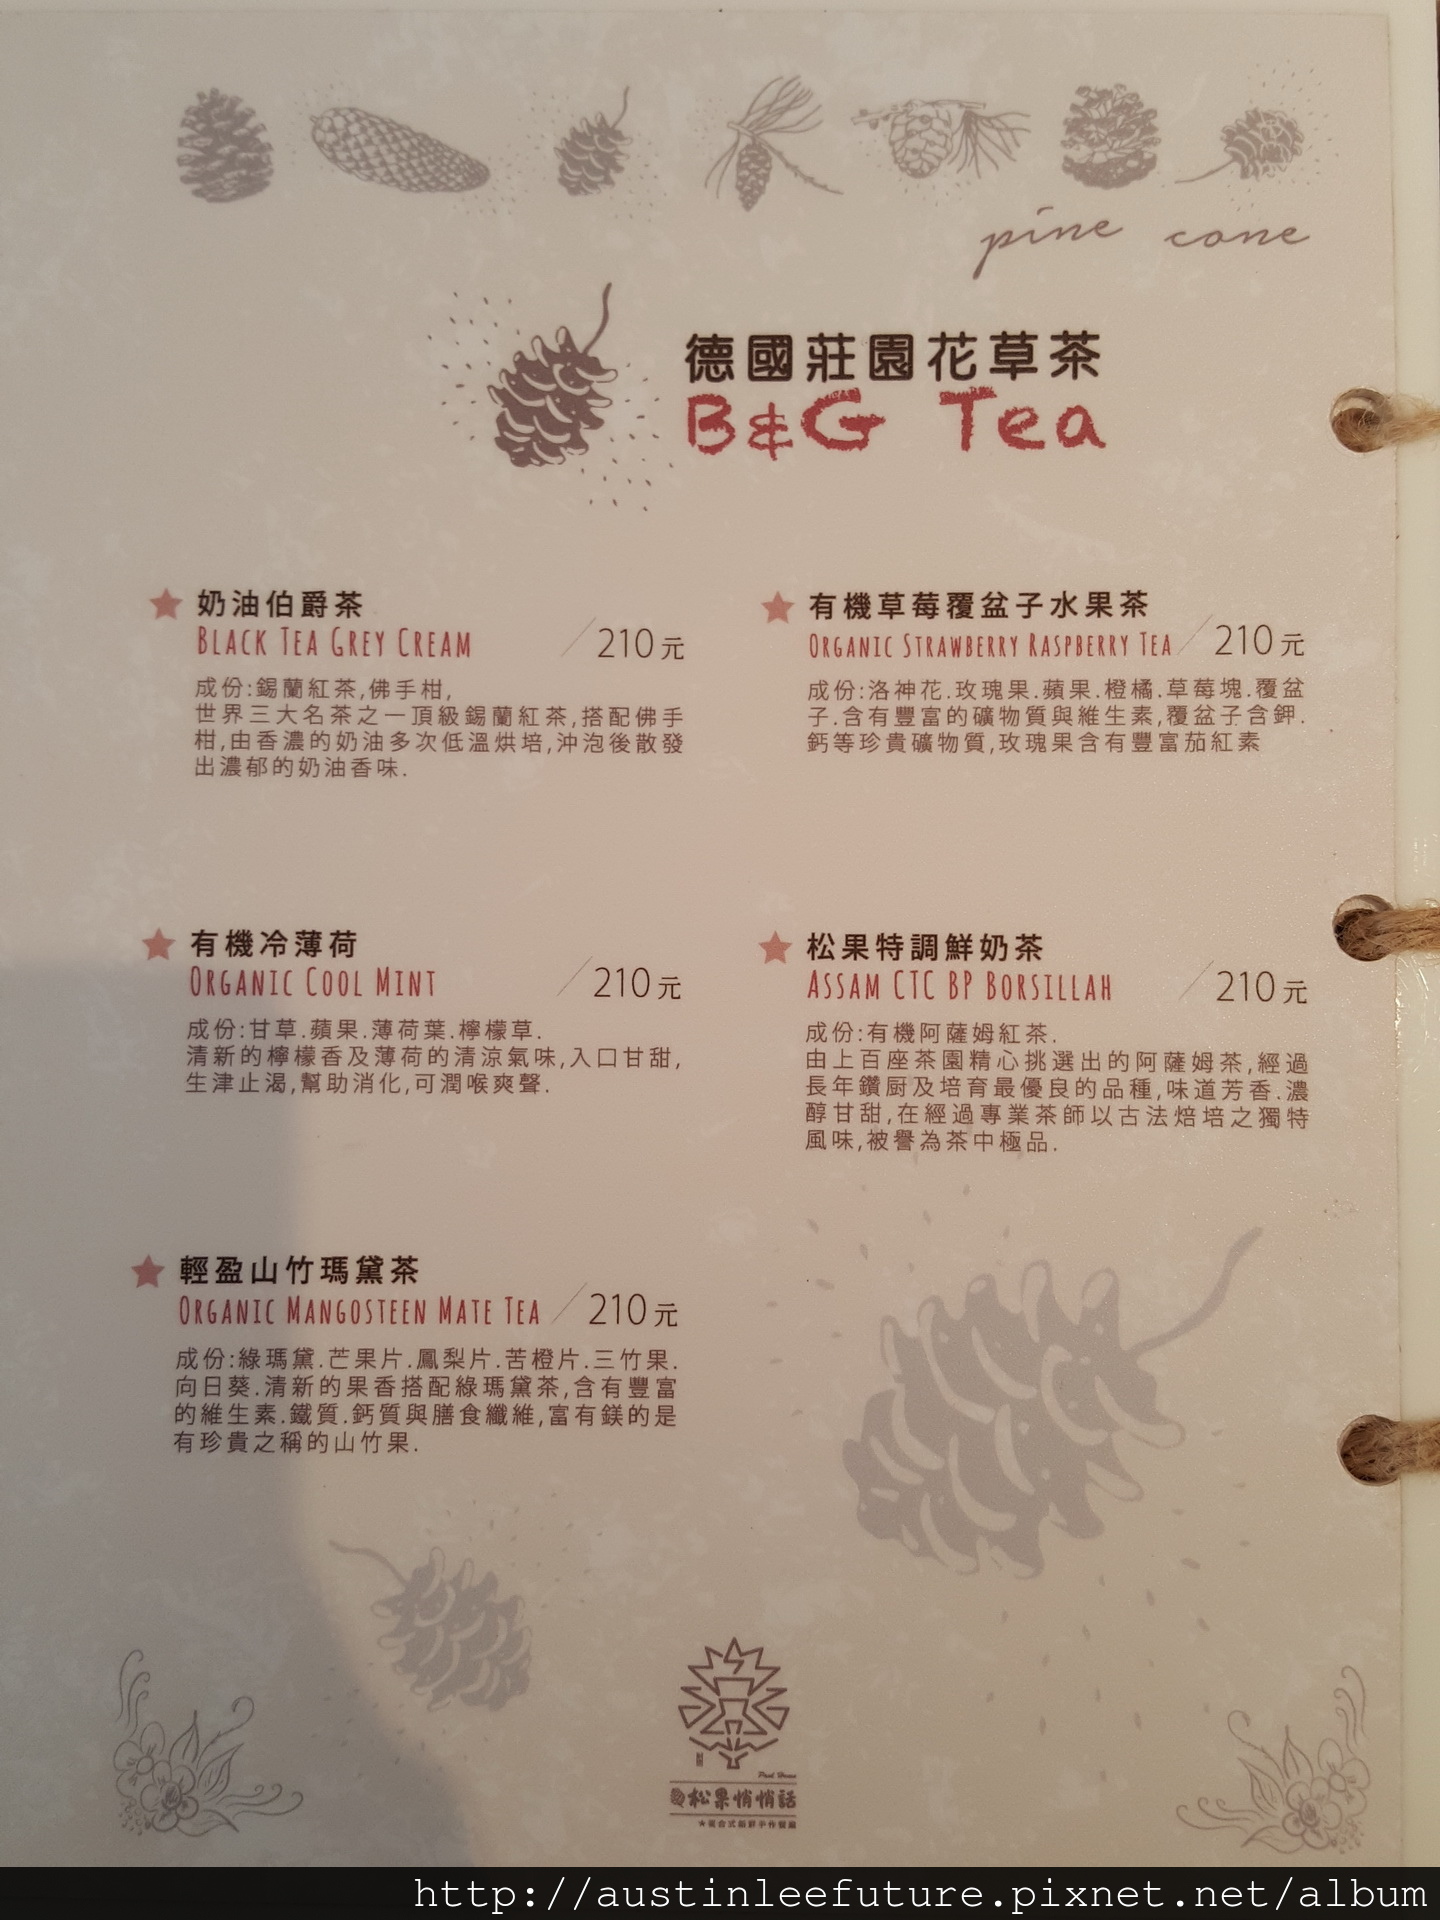 pine cone
德國莊園花草茶
B&G Tea
奶油伯爵茶
BLACK TEA GREY CREAM /210元
成份:錫蘭紅茶,佛手柑,
世界三大名茶之一頂級錫蘭紅茶,搭配佛手
柑,由香濃的奶油多次低溫烘培,沖泡後散發
出濃郁的奶油香味.
有機草莓覆盆子水果茶
ORGANIC STRAWBERRY RASPBERRY TEA /210元
成份:洛神花.玫瑰果.蘋果.橙橘.草莓塊.覆盆
子.含有豐富的礦物質與維生素,覆盆子含鉀.
鈣等珍貴礦物質,玫瑰果含有豐富茄紅素
有機冷薄荷
ORGANIC COOL MINT /210元
成份:甘草.蘋果.薄荷葉.檸檬草.
清新的檸檬香及薄荷的清涼氣味,入口甘甜,
生津止渴,幫助消化,可潤喉爽聲.
松果特調鮮奶茶
ASSAM CTC BP BORSILLAH /210元
成份:有機阿薩姆紅茶.
由上百座茶園精心挑選出的阿薩姆茶,經過
長年鑽厨及培育最優良的品種,味道芳香.濃
醇甘甜,在經過專業茶師以古法焙培之獨特
風味,被譽為茶中極品.
輕盈山竹瑪黛茶
ORGANIC MANGOSTEEN MATE TEA /210元
成份:綠瑪黛.芒果片.鳳梨片.苦橙片.三竹果.
向日葵.清新的果香搭配綠瑪黛茶,含有豐富
的維生素.鐵質.鈣質與膳食纖維,富有鎂的是
有珍貴之稱的山竹果.
松果悄悄話
http://austinleefuture.pixnet.net/album